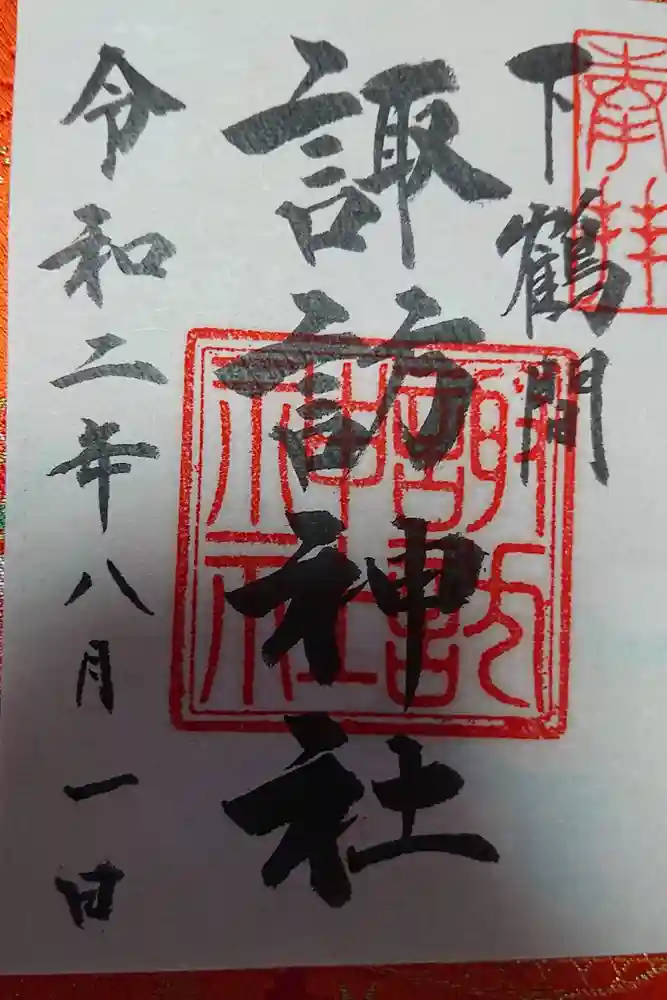 奉拝
下鶴間
諏訪神社
諏訪神社
令和二年八月一日